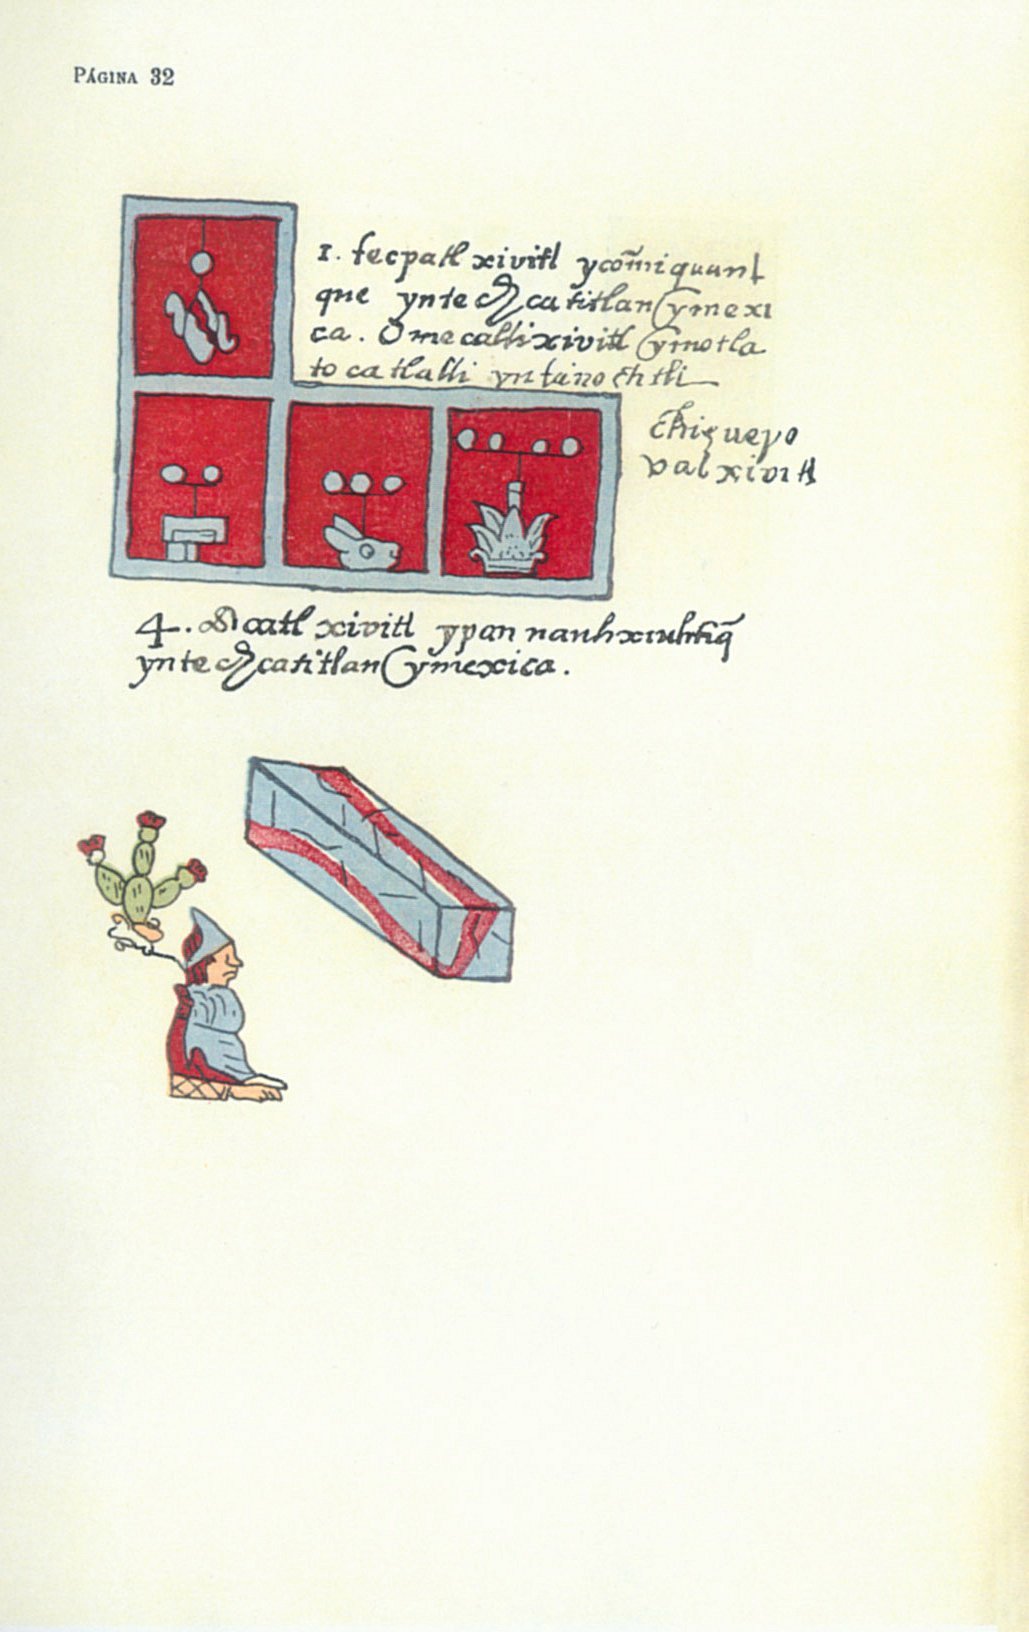 PÁGINA 32
1. tecpatl xivitl ycōmiquan
que yntechcatitlan ymexi
ca. Ome calli xivitl ymotla
tocatlalli yn tanochtli
chigueyo
val xivitl
4. Acatl xivitl ypan nauhxiuhtiq̄
yntechcatitlan ymexica.